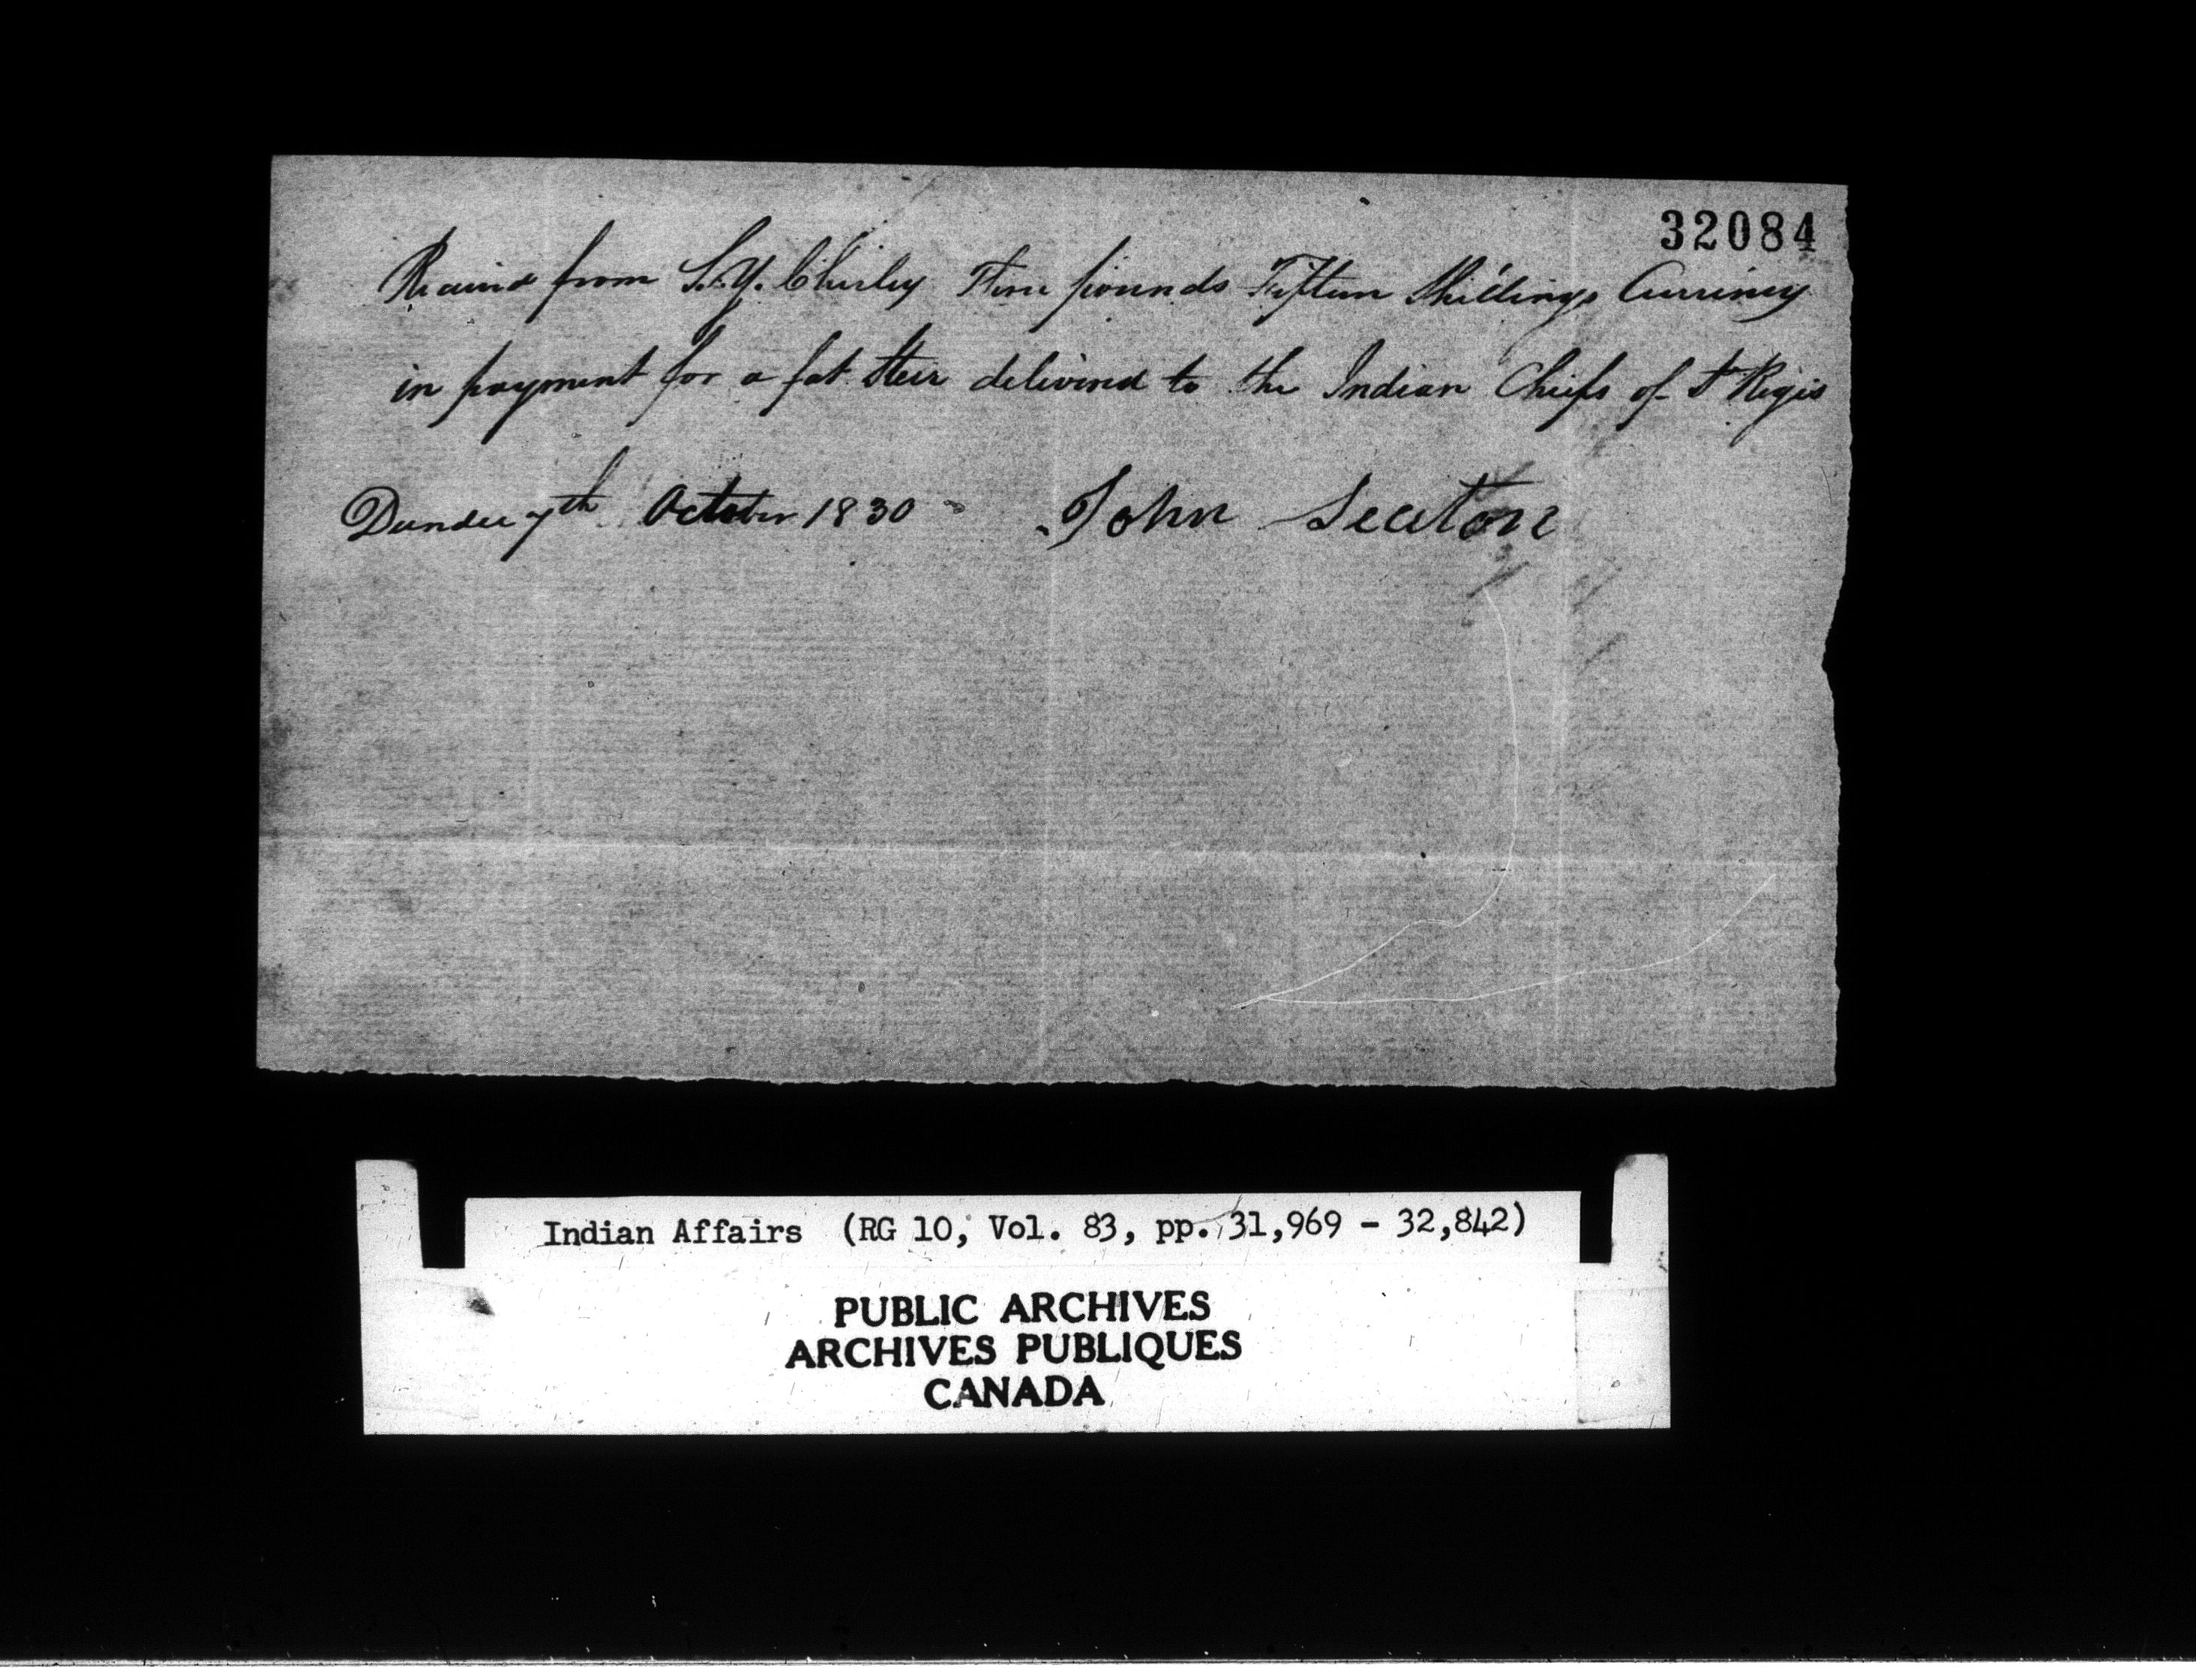 32084
Received from S. Y. Chesley Three pounds Fifteen Shillings Currency
in payment for a fat Steer delivered to the Indian Chiefs of St Regis
Dundee 7th October 1830 John Seaton
Indian Affairs (RG 10, Vol. 83, pp. 31,969 - 32,842)
PUBLIC ARCHIVES
ARCHIVES PUBLIQUES
CANADA